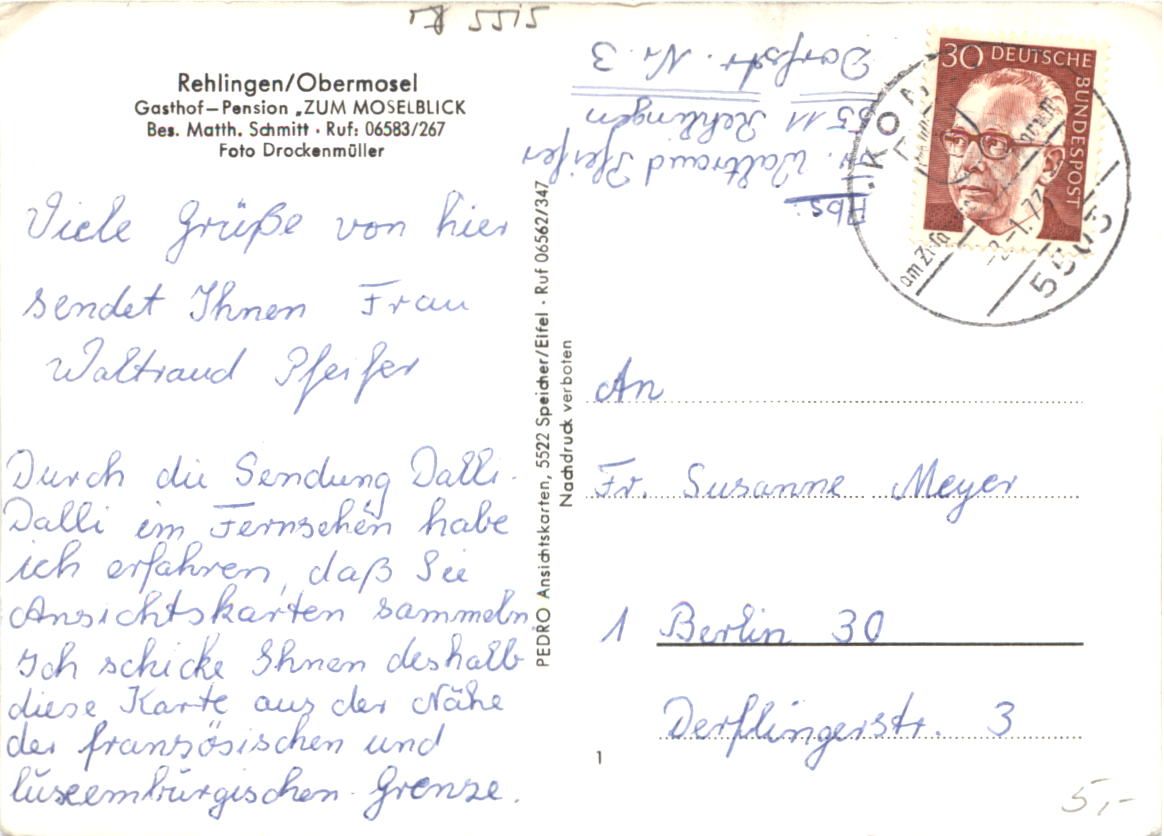 5515
Rehlingen/Obermosel
Gasthof-Pension „ZUM MOSELBLICK
Bes. Matth. Schmitt · Ruf: 06583/267
Foto Drockenmüller
Viele Grüße von hier
sendet Ihnen Frau
Waltraud Pfeifer
Durch die Sendung Dalli-
Dalli im Fernsehen habe
ich erfahren, daß Sie
Ansichtskarten sammeln.
Ich schicke Ihnen deshalb
diese Karte aus der Nähe
der französischen und
luxemburgischen Grenze.
PEDRO Ansichtskarten, 5522 Speicher/Eifel · Ruf 06562/347
Nachdruck verboten
Abs.:
Fr. Waltraud Pfeifer
5511 Rehlingen
Dorfstr. Nr. 3
30 DEUTSCHE
BUNDESPOST
KON
5503
An
Fr. Susanne Meyer
1 Berlin 30
Derflingerstr. 3
1
5,-